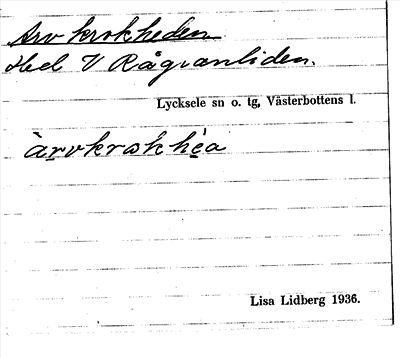 Arvkrokheden
Hed V Rågvanliden.
Lycksele sn o. tg, Västerbottens l.
àrvkrokhéa
Lisa Lidberg 1936.